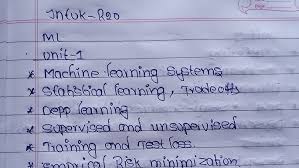 Jntuk-R20
ML
Unit-1
* Machine learning Systems
* Statistical learning, Tradeoffs
* Depp learning
* Supervised and unsupervised
* Training and Test loss.
* emprical Risk minimization